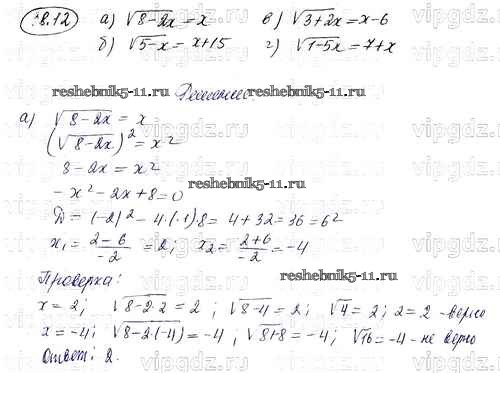 18.12 а) √8-2x = x в) √3+2x = x-6
б) √5-x = x+15 г) √1-5x = 7+x
reshebnik5-11.ru Решение. reshebnik5-11.ru
а) √8-2x = x
(√8-2x)² = x²
8-2x = x²
-x²-2x+8=0
reshebnik5-11.ru
D = (-2)² - 4·(-1)·8 = 4+32=36=6²
x₁ = (2-6)/-2 = 2; x₂ = (2+6)/-2 = -4
Проверка:
reshebnik5-11.ru
x=2; √8-2·2 = 2; √8-4 = 2; √4 = 2; 2=2 - верно
x=-4; √8-2·(-4) = -4, √8+8 = -4; √16 = -4 - не верно
Ответ: 2.
vipgdz.ru